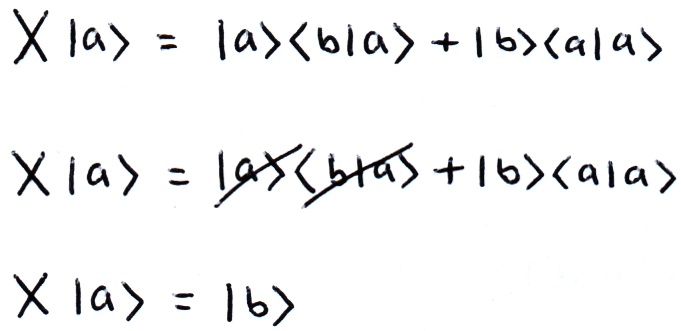 X |a⟩ = |a⟩⟨b|a⟩ + |b⟩⟨a|a⟩
X |a⟩ = |a⟩⟨b|a⟩ + |b⟩⟨a|a⟩
X |a⟩ = |b⟩